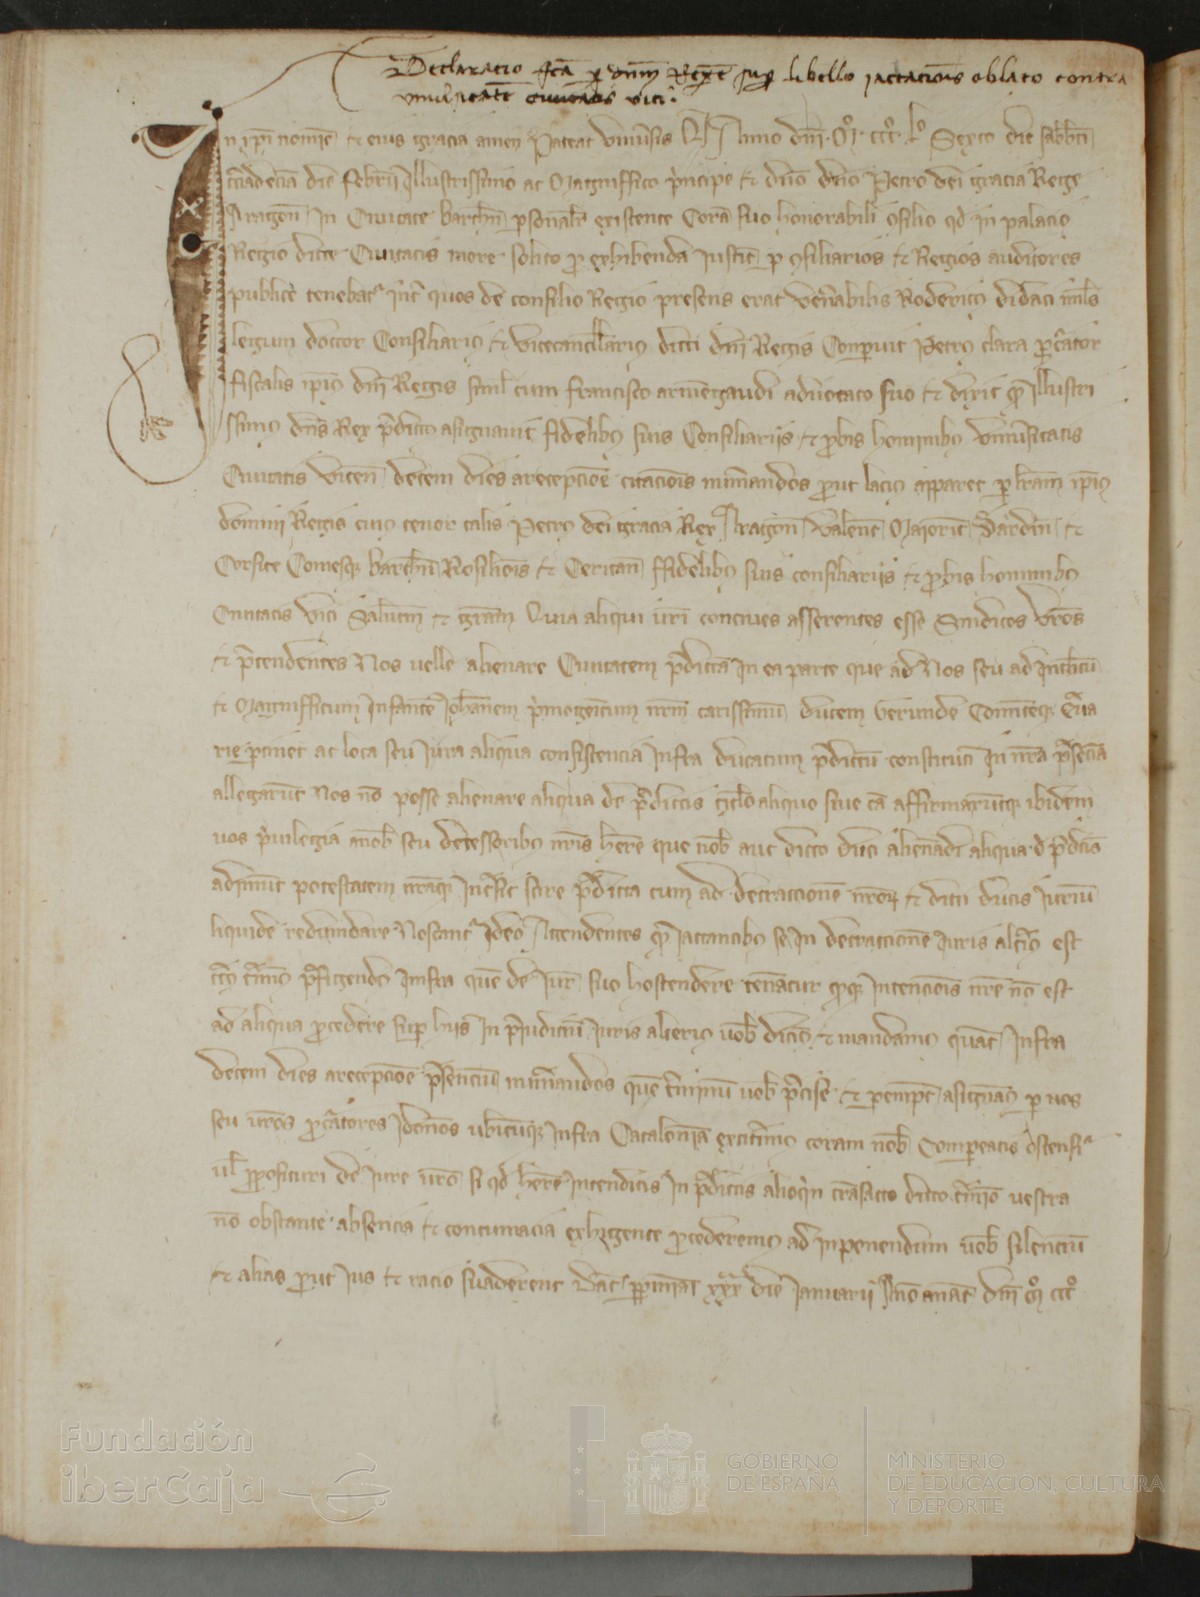 Declaracio fca p dnm Regem sup libello iactacionis oblato contra
universitatem Civitatis vici.
In xpi nomine et eius gracia amen Pateat Universis Q Anno dni Mo ccco Lo Sexto die sabbti
die Febrii Illustrissimo ac Magniffico principe et dno dno Petro dei gracia Rege
Aragon In Civitate barchn personalr existente Cora suo honorabili consilio qd in palacio
Regio dicte Civitatis more solito p exhibenda Iustic p consiliarios et Regios auditores
publice tenebat Inter quos de consilio Regio presens erat venerabilis Roderic didaci miles
legum doctor Consiliario et vicecancellario dicti dni Regis Comparuit Petro clara procurator
fiscalis ipius dni Regis siml cum francisco armengaudi advocato suo et dixit q Illustri
ssimus dns Rex predicto asignavit fidelibus suis Consiliariis et probis hominibus universitatis
Civitatis vicen decem dies a recepcione citacionis numerandos prout lacius apparet p lram ipius
domini Regis cuius tenor talis Petrus dei gracia Rex Aragon valenc Maioric Sardin et
Corsice Comesq barchn Rosilionis et Ceritan Fidelibus suis consiliariis et probis hominibus
Civitatis vici Salutem et gram Quia aliqui uri concives asserentes esse Sindicos vros
et pretendentes Nos velle alienare Civitatem predictam In ea parte que ad Nos seu ad Inclitu
et Magnifficum Infante Iohanem primogenitum nrm carissimu ducem Gerunde Comiteq Cerva
rie ptinet ac loca seu Iura aliqua consistencia Infra ducatum predictu constituti In nra presencia
allegarut Nos no posse alienare aliqua de predictis titulo aliquo sive ca affirmaruntq ibidem
vos privilegia a nob seu decessoribus nris here que nob aut dicto duci alienadi aliqua de predictis
adimut potestatem scire predicta cum ad detraccione nrorum et dicti ducis iuriu
liquide redundare Noscant Ideo Attendentes q iactantibus se In detraccione Iuris alterius est
terminus prefigendus Imfra que de iure suo hostendere teneatur intencionis nre no est
ad aliqua procedere sup hiis In preiudiciu Iuris alterius vob dicimus et mandamus quat Infra
decem dies a recepcione presenciu numerandos que terminu vob precise et perempt asignam p vos
seu vros procuratores Idoneos ubicunq Infra Cataloniam coram nob Compareatis ostensuri
vel proposituri de iure vro si qd here Intenditis In predictis alioquin transacto dicto termino vestra
no obstante absencia et contumacia exhigente procederemus ad inponendum vob silenciu
et alias prout ius et racio suaderent Dat ppiniani xxx die Ianuarii Ano a nat dni Mo ccco